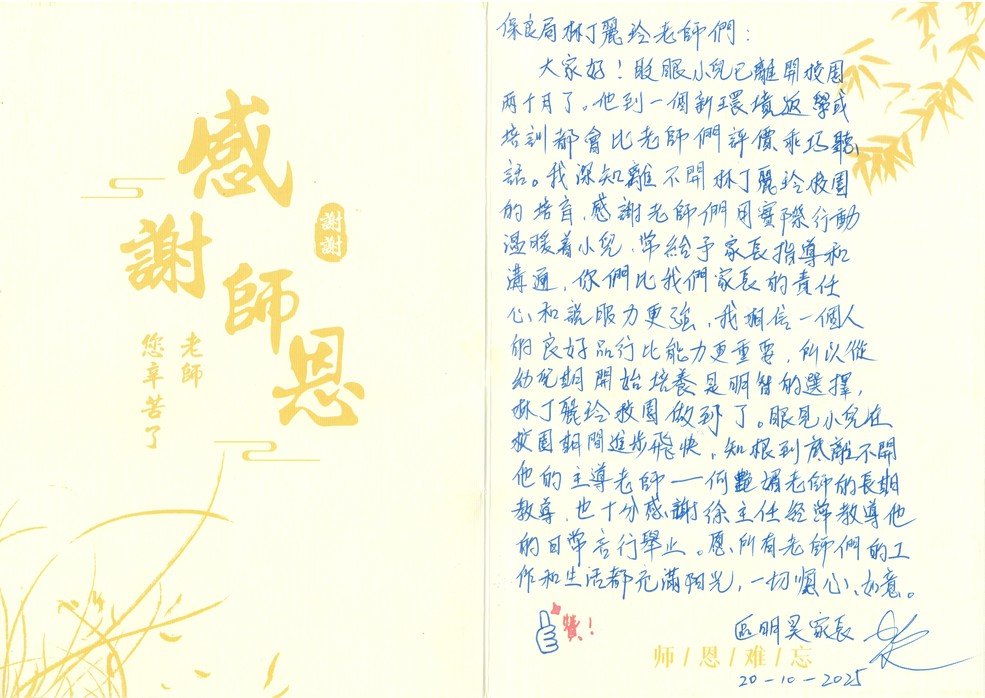 感謝師恩
謝謝
老師
您辛苦了
保良局林丁麗玲老師們：
大家好！眨眼小兒已離開校園
兩个月了。他到一個新環境返學或
培訓都會比老師們評價乖巧聽
話。我深知離不開林丁麗玲校園
的培育，感謝老師們用實際行動
溫暖着小兒，常給予家長指導和
溝通，你們比我們家長的責任
心和說服力更強，我相信一個人
的良好品行比能力更重要，所以從
幼兒期開始培養是明智的選擇，
林丁麗玲校園做到了。眼見小兒在
校園期間進步飛快，知根到底離不開
他的主導老師——何艷媚老師的長期
教導，也十分感謝徐主任經常教導他
的日常言行舉止。愿所有老師們的工
作和生活都充滿陽光，一切順心、如意。
贊！
區明昊家長
师/恩/难/忘
20-10-2025